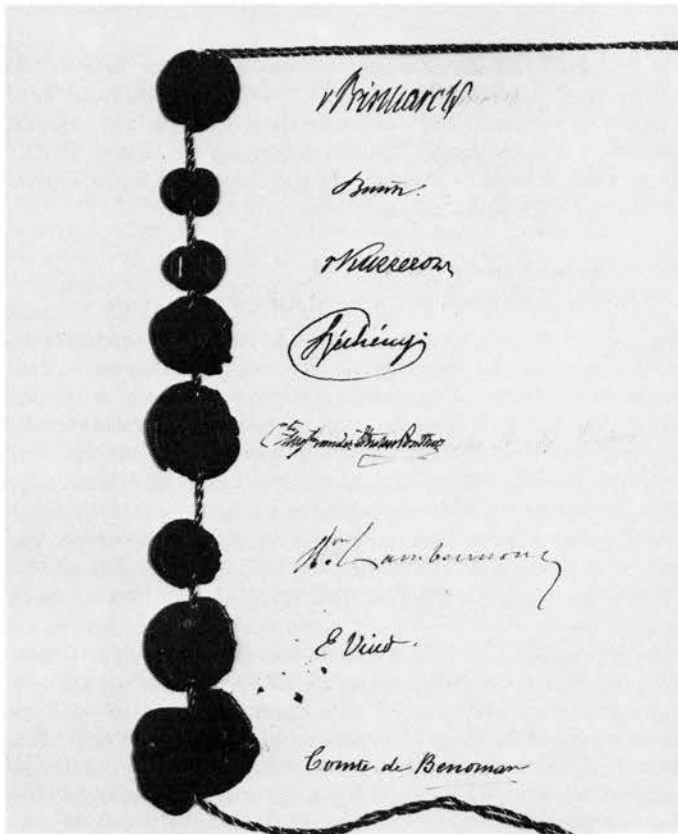 v Bismarck
Busch.
v Kusserow
Széchényi
Cte Auguste van der Straten Ponthoz
Bn Lambermont
E Vind.
Comte de Benomar